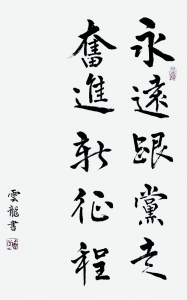 永遠跟黨走
奮進新征程
雲龍書